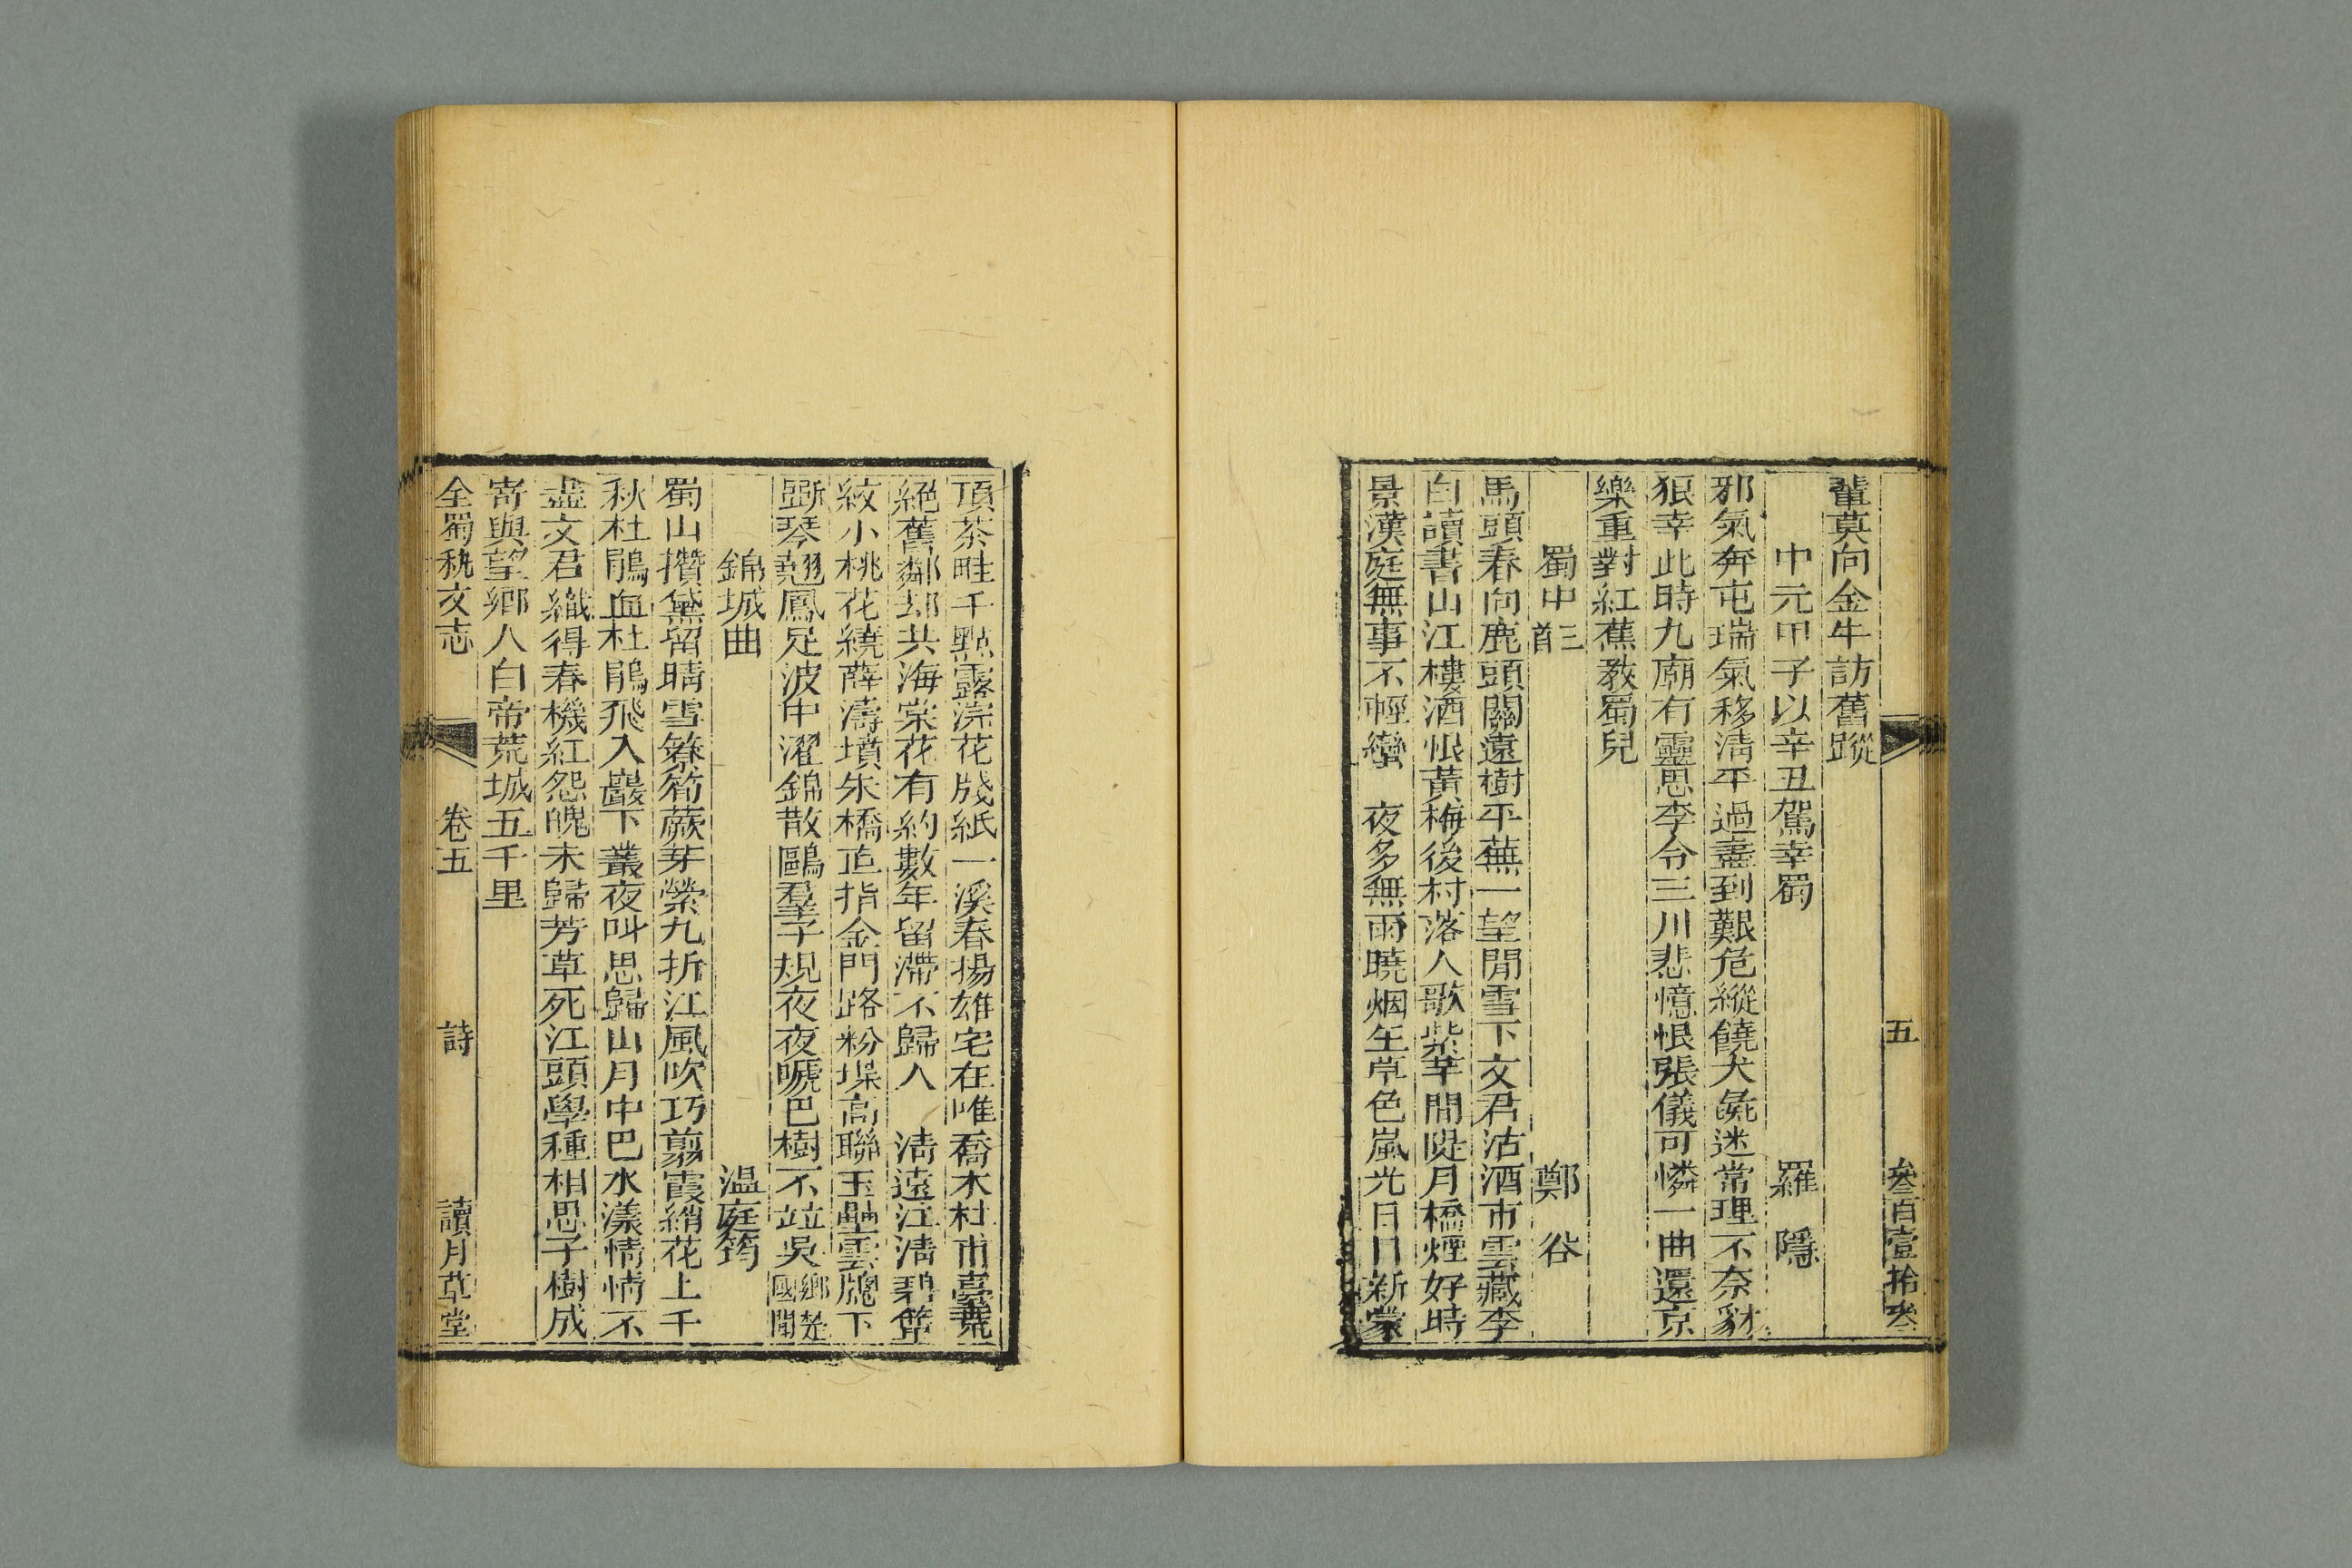 五 叁百壹拾叁
輩莫向金牛訪舊蹤
中元甲子以辛丑駕幸蜀 羅隱
邪氣奔屯瑞氣移淸平過盡到艱危縱饒犬彘迷常理不奈豺
狠幸此時九廟有靈思李令三川悲憶恨張儀可憐一曲還京
樂重對紅蕉敎蜀兒
蜀中三首 鄭谷
馬頭春向鹿頭關遠樹平蕪一望閒雪下文君沽酒市雲藏李
白讀書山江樓酒恨黃梅後村落人歌紫芋間隄月橋燈好時
景漢庭無事不輕蠻 夜多無雨曉烟生草色嵐光日日新蒙
頂茶畦千點露浣花牋紙一溪春揚雄宅在唯喬木杜甫臺荒
絕舊鄰却共海棠花有約數年留滯不歸人 淸遠江淸碧簟
紋小桃花繞薛濤墳朱橋直指金門路粉堞高聯玉壘雲牕下
斲琴翹鳳足波中濯錦散鷗羣子規夜夜嗁巴樹不竝吳鄉楚國聞
錦城曲 温庭筠
蜀山攢黛留晴雪簝筍蕨芽縈九折江風吹巧剪霞綃花上千
秋杜鵑血杜鵑飛入巖下叢夜叫思歸山月中巴水漾情情不
盡文君織得春機紅怨魄未歸芳草死江頭學種相思子樹成
寄與望鄉人白帝荒城五千里
全蜀秇文志 卷五 詩 讀月草堂